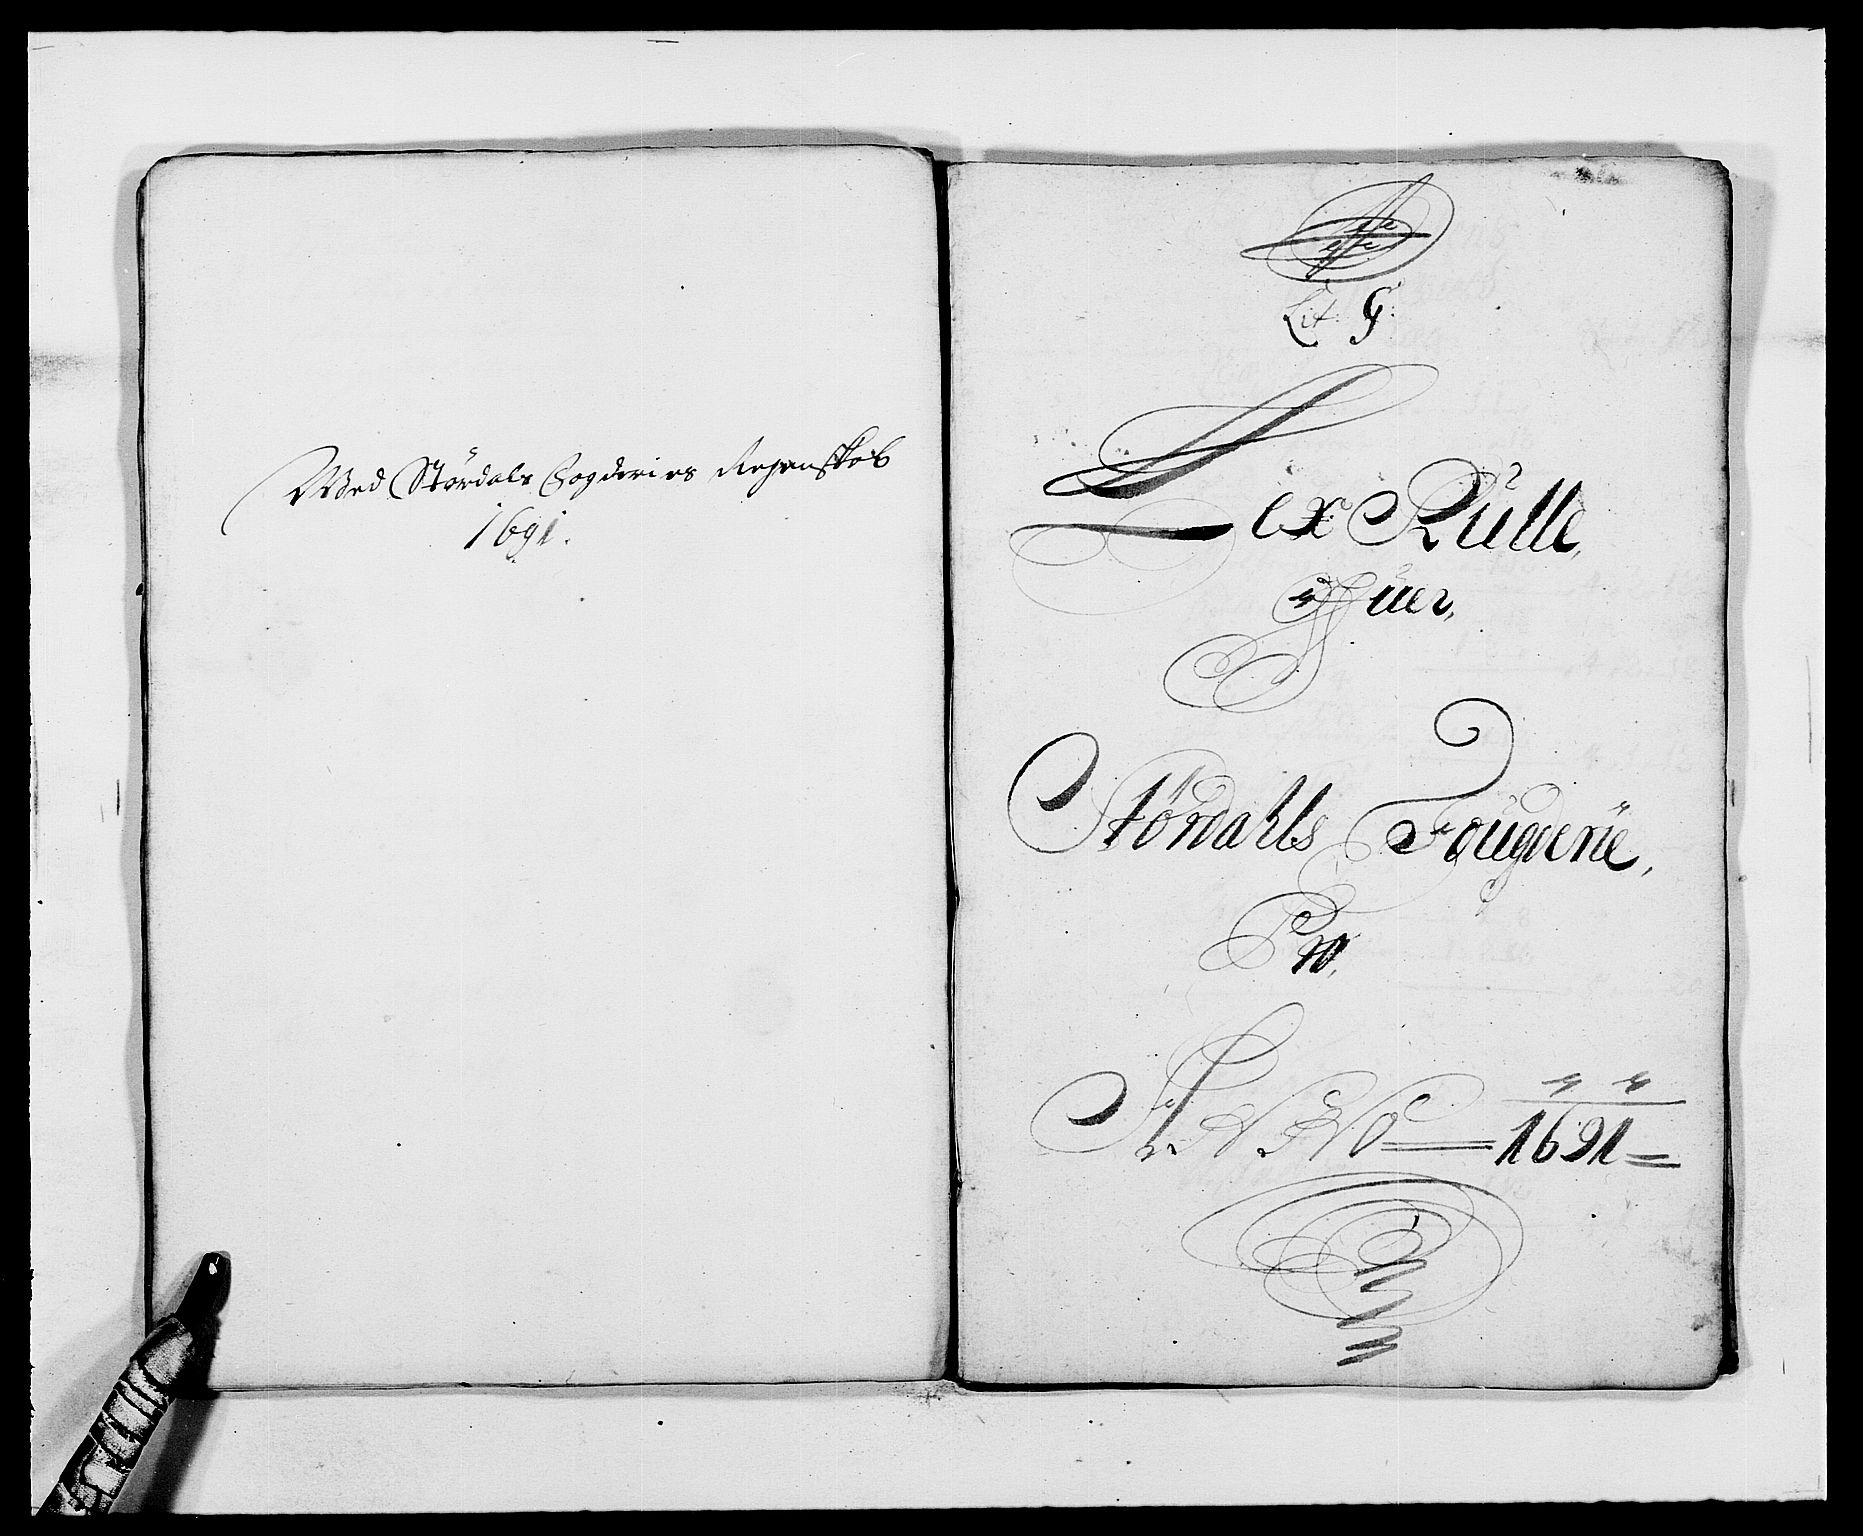 Med Stördals Fogderies Regenskab
1691.
Lit: G:
Lex Rulle,
Ofuer,
Stördahls Fougderie,
Pro,
ANNO 1691